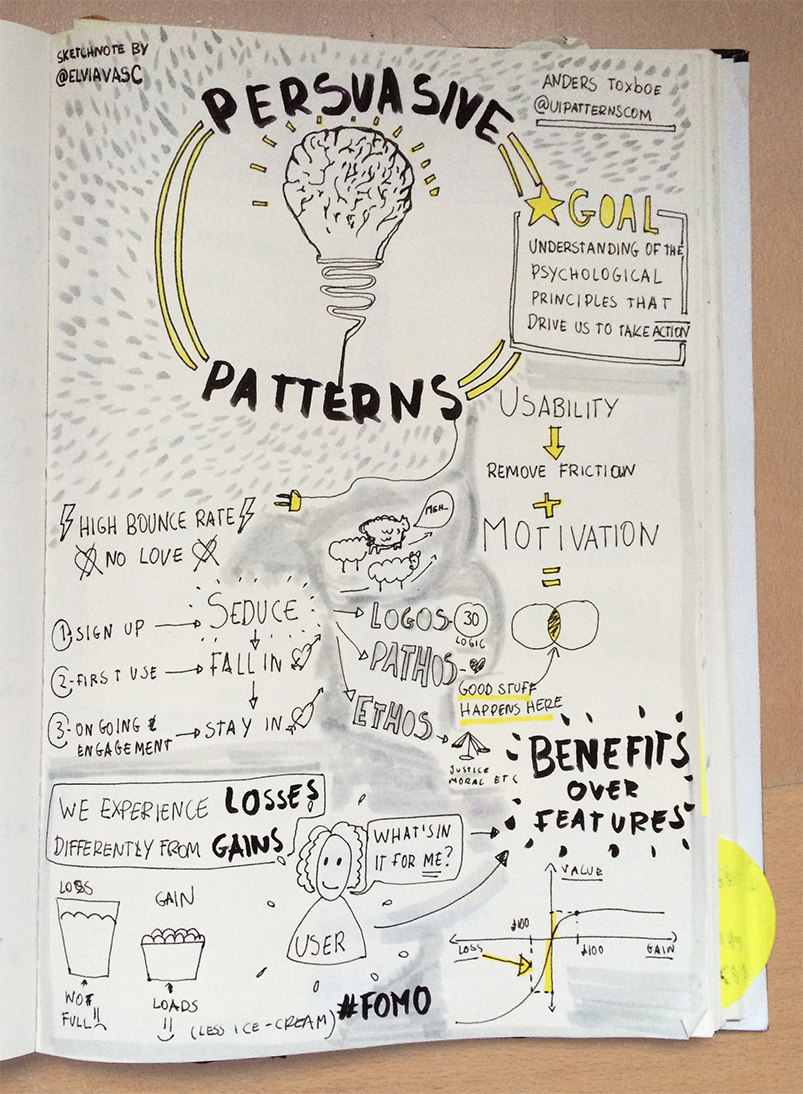 SKETCHNOTE BY
@ELVIAVASC
ANDERS TOXBOE
@UIPATTERNSCOM
PERSUASIVE
PATTERNS
GOAL
UNDERSTANDING OF THE
PSYCHOLOGICAL
PRINCIPLES THAT
DRIVE US TO TAKE ACTION
USABILITY
REMOVE FRICTION
+
MOTIVATION
=
GOOD STUFF
HAPPENS HERE
HIGH BOUNCE RATE
NO LOVE
MEH...
1 SIGN UP
SEDUCE
2 FIRST USE
FALL IN
3 ON GOING &
ENGAGEMENT
STAY IN
LOGOS
30
LOGIC
PATHOS
ETHOS
JUSTICE
MORAL ETC
BENEFITS
OVER
FEATURES
WE EXPERIENCE LOSSES
DIFFERENTLY FROM GAINS
WHAT'S IN
IT FOR ME?
USER
LOSS
GAIN
FULL!!
LOADS
(LESS ICE-CREAM)
#FOMO
VALUE
£100
LOSS
£100
GAIN